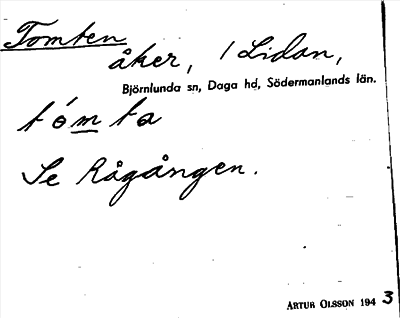 Tomten
åker, 1 Lidan,
Björnlunda sn, Daga hd, Södermanlands län.
tómta
Se Rågången.
ARTUR OLSSON 1943